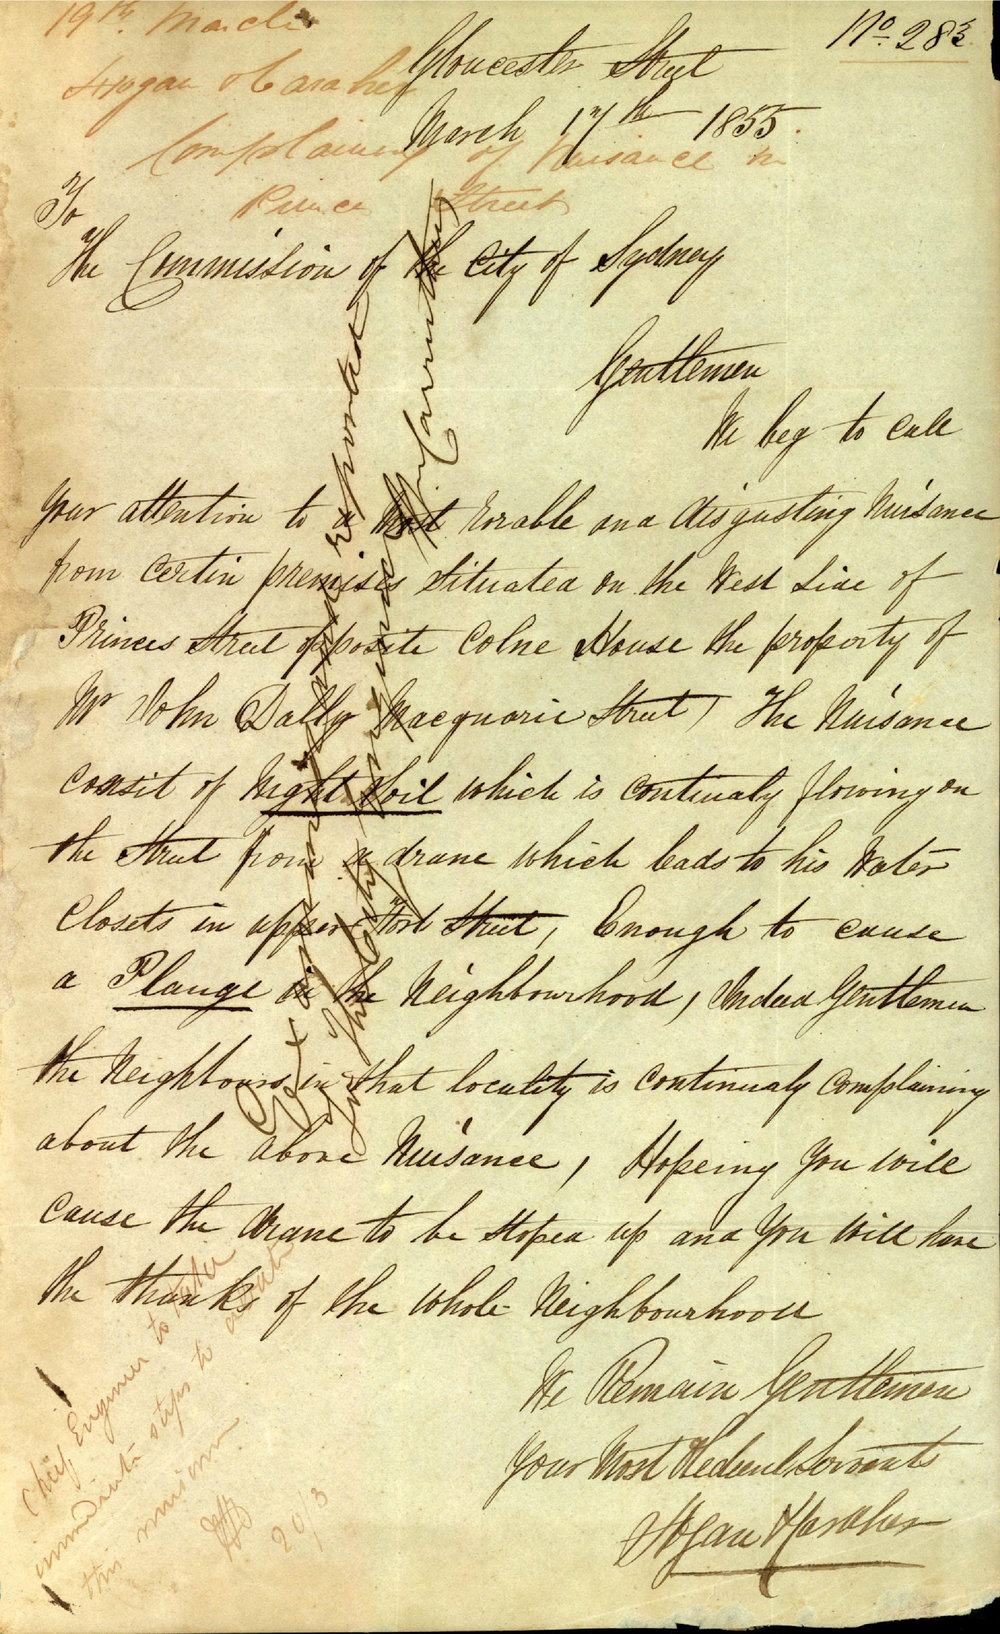 19th March
No. 283
Hogan & Caraher
Complaining of Nuisance in
Prince Street
Gloucester Street
March 17th 1855.
To
The Commission of the City of Sydney
Gentlemen
We beg to call
your attention to a Most horable and disgusting Nuisance
from certin premises situated on the West side of
Princes Street opposite Colne House the property of
Mr John Dally Macquarie Street, The Nuisance
consit of Night Soil which is continualy flowing on
the Street from a drane which leads to his Water
Closets in upper Fort Street, Enough to cause
a Plauge in the Neighbourhood, Indeed Gentlemen
the Neighbours in that locality is continualy complaining
about the above Nuisance, Hopeing you will
cause the drane to be stoped up and you will have
the thanks of the whole Neighbourhood
We Remain Gentlemen
Your Most Servants
Hogan & Caraher
and reported
for the City information
Chief Engineer to take
immediate steps to abate
this nuisance
20/3